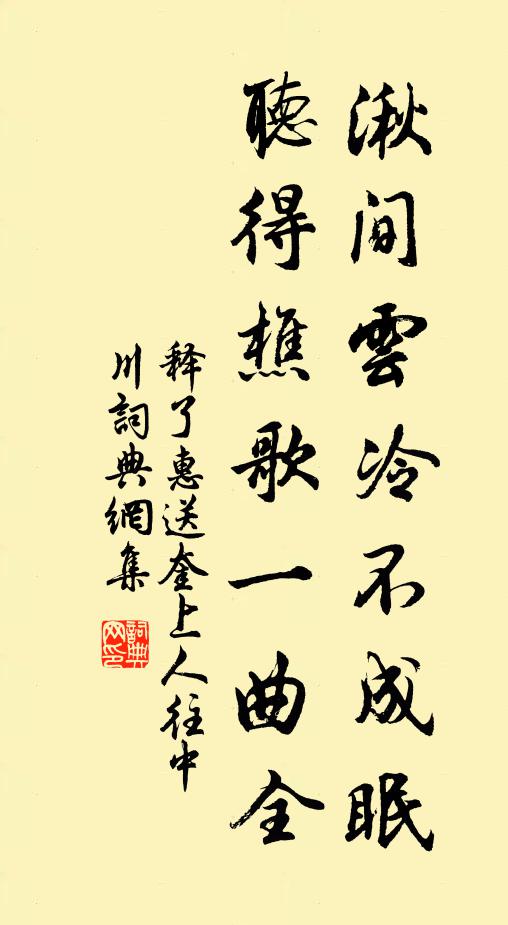 湫間雲冷不成眠
聽得樵歌一曲全
释了惠送奎上人往中
川詞典網集
詞典网印